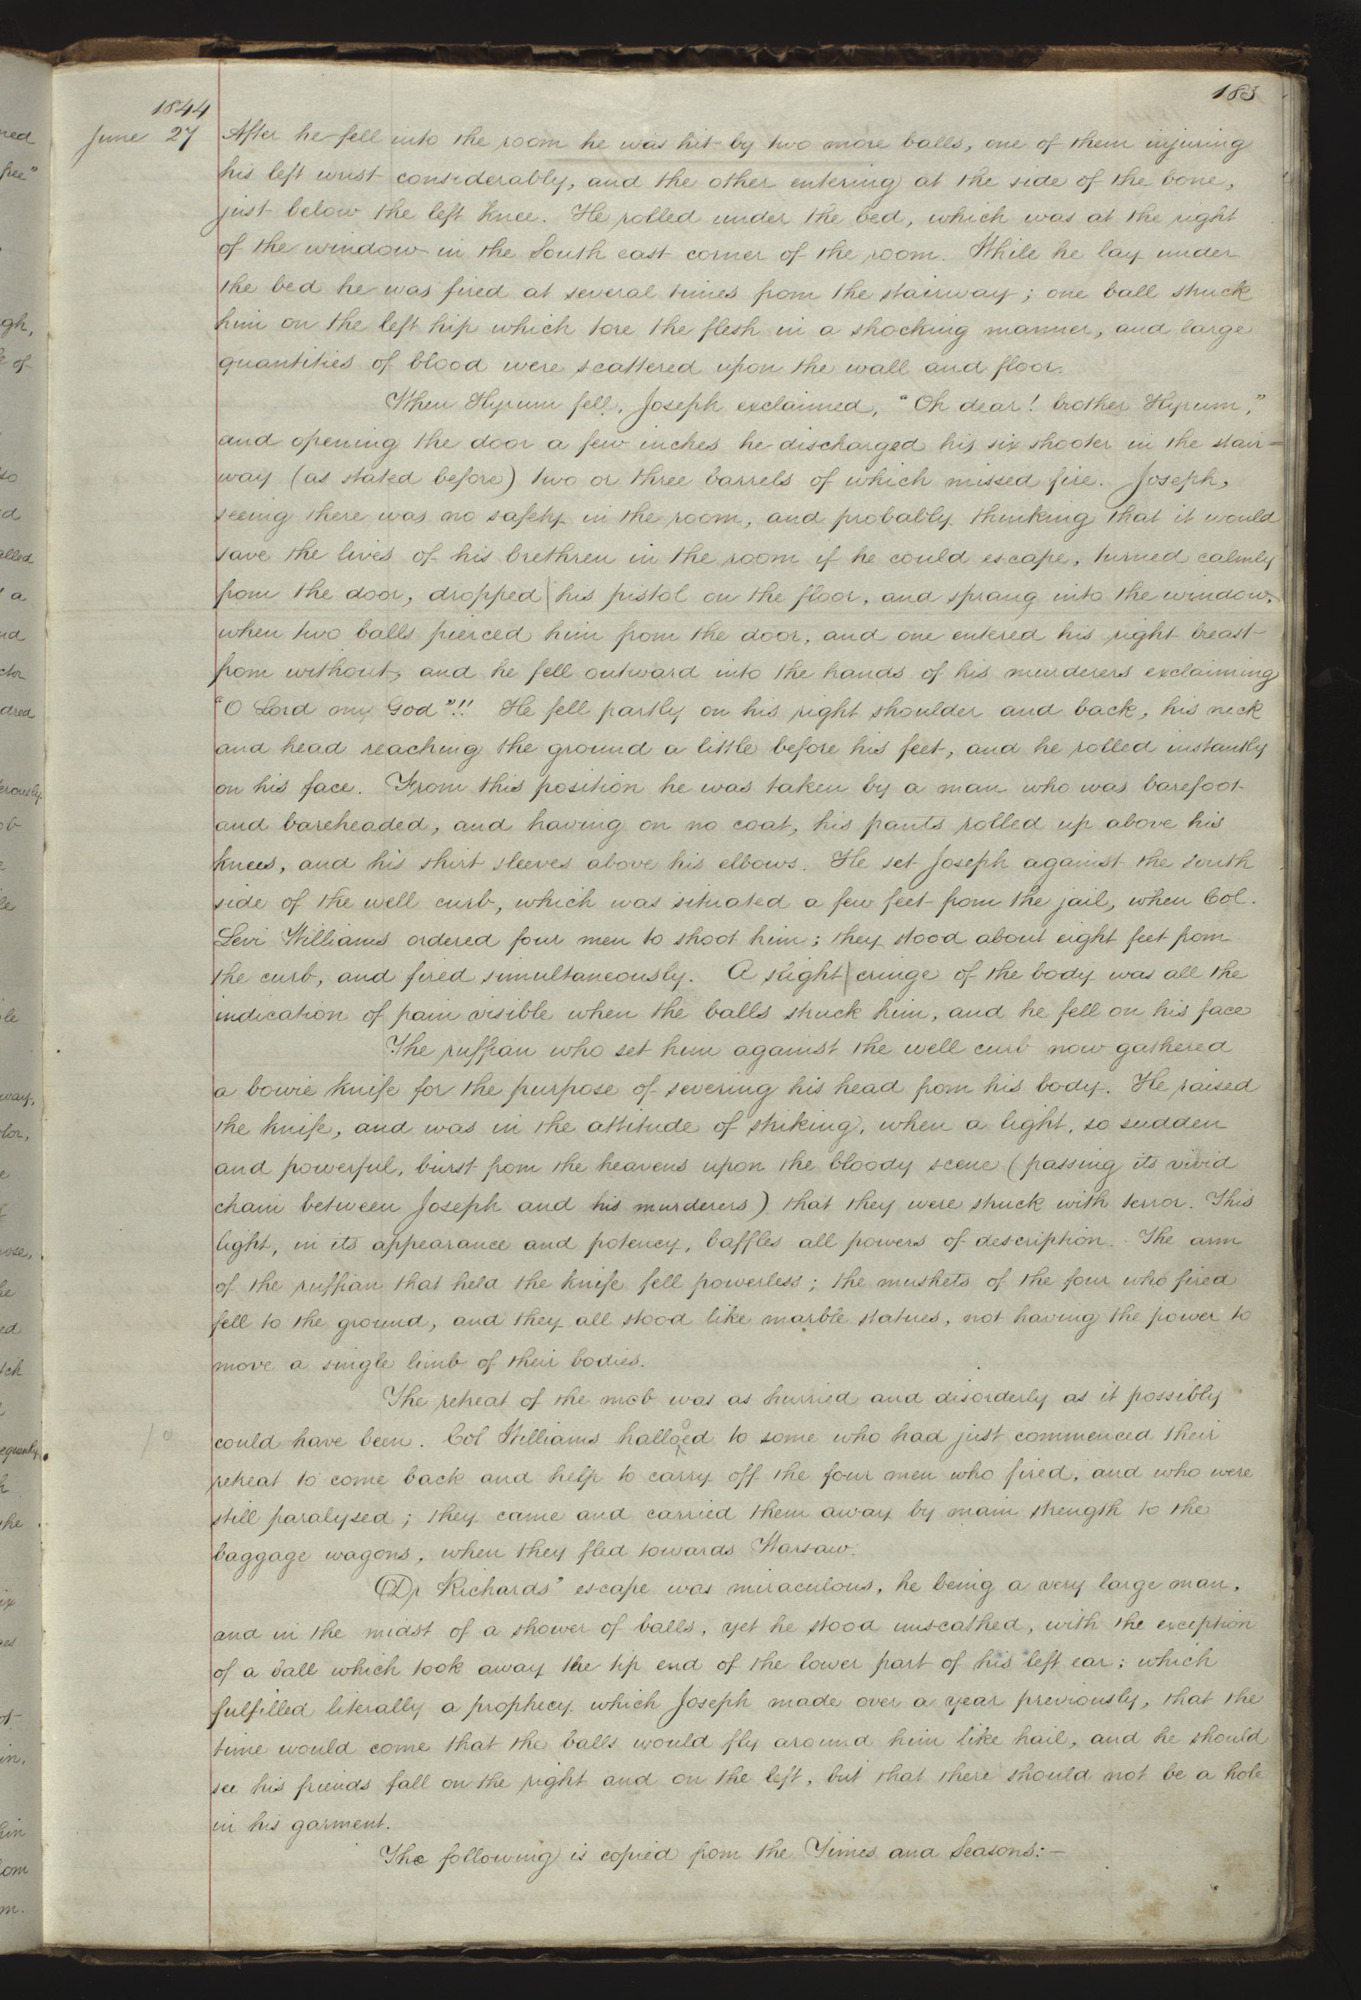 183
1844
June 27 After he fell into the room he was hit by two more balls, one of them injuring
his left wrist considerably, and the other entering at the side of the bone,
just below the left knee. He rolled under the bed, which was at the right
of the window in the South east corner of the room. While he lay under
the bed he was fired at several times from the stairway; one ball struck
him on the left hip which tore the flesh in a shocking manner, and large
quantities of blood were scattered upon the wall and floor.
When Hyrum fell, Joseph exclaimed, "Oh dear! brother Hyrum,"
and opening the door a few inches he discharged his six shooter in the stair-
way (as stated before) two or three barrels of which missed fire. Joseph,
seeing there was no safety in the room, and probably thinking that it would
save the lives of his brethren in the room if he could escape, turned calmly
from the door, dropped his pistol on the floor, and sprang into the window,
when two balls pierced him from the door, and one entered his right breast
from without, and he fell outward into the hands of his murderers exclaiming
"O Lord my God"!! He fell partly on his right shoulder and back, his neck
and head reaching the ground a little before his feet, and he rolled instantly
on his face. From this position he was taken by a man who was barefoot
and bareheaded, and having on no coat, his pants rolled up above his
knees, and his shirt sleeves above his elbows. He set Joseph against the south
side of the well curb, which was situated a few feet from the jail, when Col.
Levi Williams ordered four men to shoot him; they stood about eight feet from
the curb, and fired simultaneously. A slight cringe of the body was all the
indication of pain visible when the balls struck him, and he fell on his face
The ruffian who set him against the well curb now gathered
a bowie knife for the purpose of severing his head from his body. He raised
the knife, and was in the attitude of striking, when a light, so sudden
and powerful, burst from the heavens upon the bloody scene (passing its vivid
chain between Joseph and his murderers) that they were struck with terror. This
light, in its appearance and potency, baffles all powers of description. The arm
of the ruffian that held the knife fell powerless; the muskets of the four who fired
fell to the ground, and they all stood like marble statues, not having the power to
move a single limb of their bodies.
The retreat of the mob was as hurried and disorderly as it possibly
could have been. Col Williams hallooed to some who had just commenced their
retreat to come back and help to carry off the four men who fired, and who were
still paralysed; they came and carried them away by main strength to the
baggage wagons, when they fled towards Warsaw.
Dr Richards' escape was miraculous, he being a very large man,
and in the midst of a shower of balls, yet he stood unscathed, with the exception
of a ball which took away the tip end of the lower part of his left ear; which
fulfilled literally a prophecy which Joseph made over a year previously, that the
time would come that the balls would fly around him like hail, and he should
see his friends fall on the right and on the left, but that there should not be a hole
in his garment.
The following is copied from the Times and Seasons:—